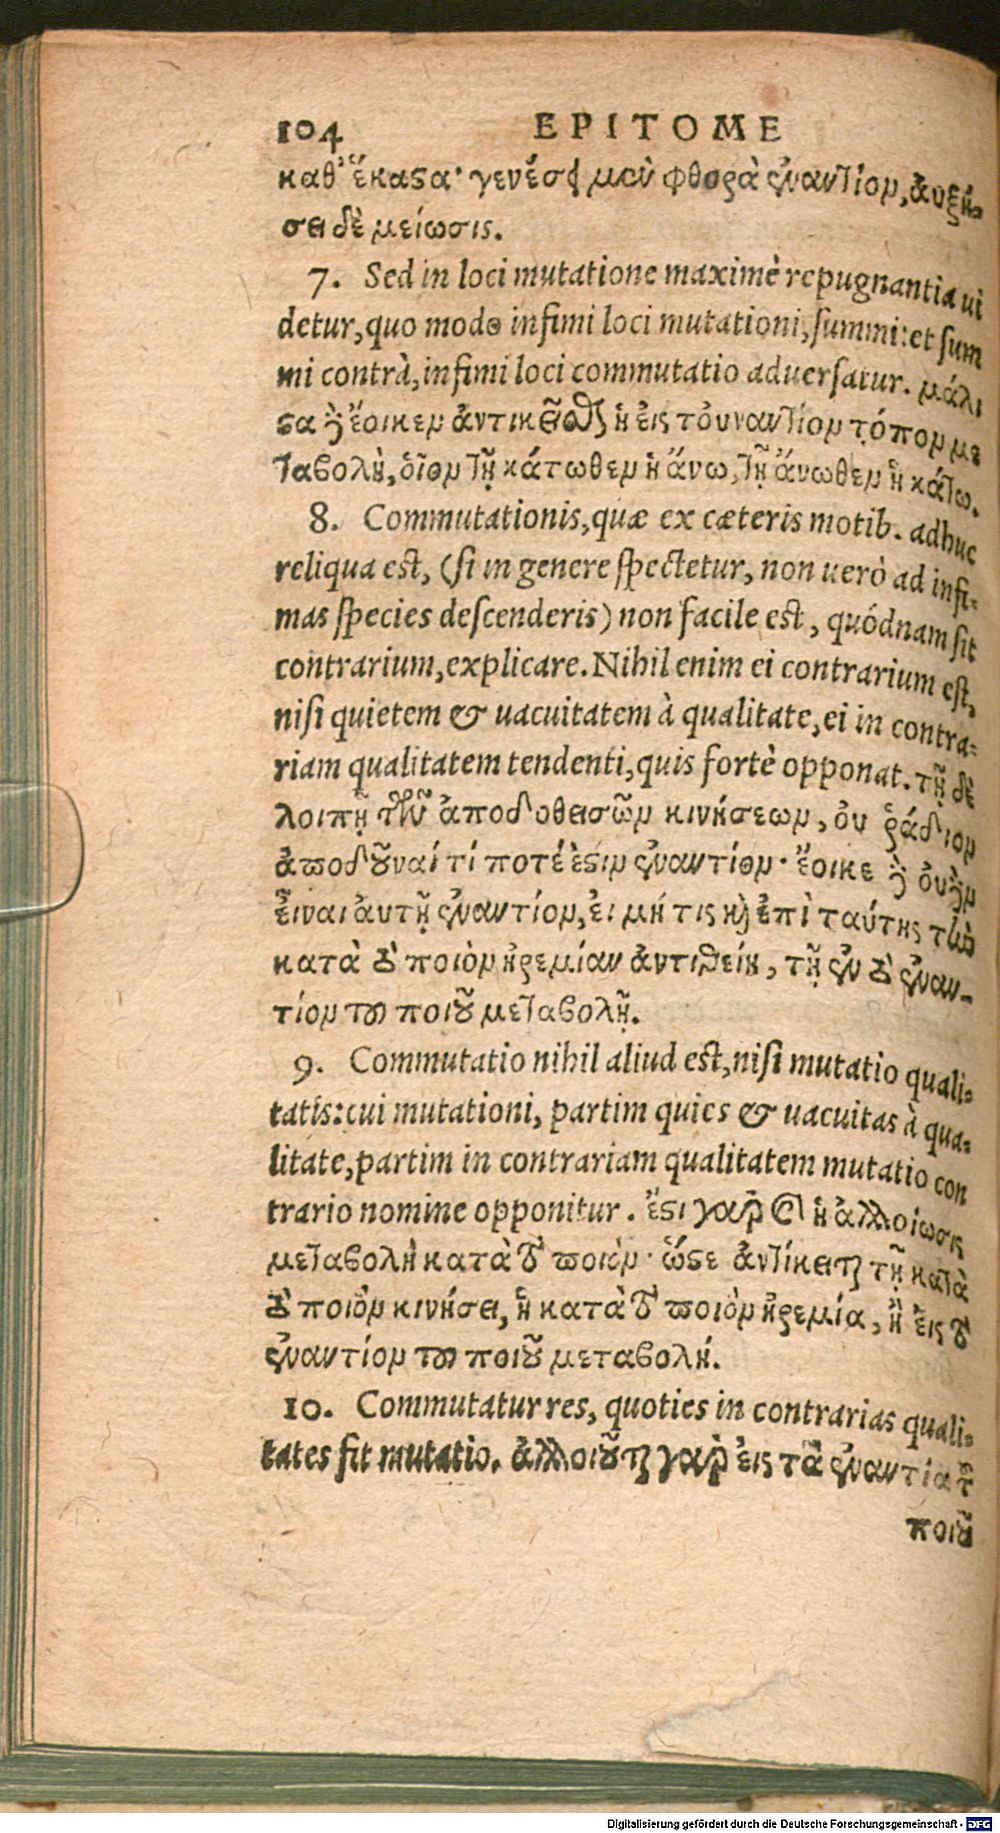 104 EPITOME
καθ' ἕκαστα· γενέσει μὲν φθορὰ ἐναντίον, ἀυξή-
σει δὲ μείωσις.
7. Sed in loci mutatione maximè repugnantia ui
detur, quo modo infimi loci mutationi, summi: et sum
mi contrà, infimi loci commutatio aduersatur. μάλι
στα δ' ἔοικεν ἀντικεῖσθαι ἡ ἐις τὸυναντίον τόπον με
ταβολὴ, ὁῖον τῇ κάτωθεν ἡ ἄνω, τῇ ἄνωθεν ἡ κάτω.
8. Commutationis, quæ ex cæteris motib. adhuc
reliqua est, (si in genere spectetur, non uerò ad infi-
mas species descenderis) non facile est, quódnam sit
contrarium, explicare. Nihil enim ei contrarium est,
nisi quietem & uacuitatem à qualitate, ei in contra-
riam qualitatem tendenti, quis fortè opponat. τῇ δὲ
λοιπῇ τῶν ἀποδοθεισῶν κινήσεων, ὀυ ῥάδιον
ἀποδοῦναί τί ποτέ ἐστιν ἐναντίον· ἔοικε δ' ὀυδὲν
ἔιναι ἀυτῇ ἐναντίον, ἐι μή τις καὶ ἐπὶ ταύτης τὴν
κατὰ τὸ ποιὸν ἠρεμίαν ἀντιθείη, τῇ ἐν τὸ ἐναν-
τίον τοῦ ποιοῦ μεταβολῇ.
9. Commutatio nihil aliud est, nisi mutatio quali-
tatis: cui mutationi, partim quies & uacuitas à qua-
litate, partim in contrariam qualitatem mutatio con
trario nomine opponitur. ἔστι γὰρ καὶ ἡ ἀλλοίωσις
μεταβολὴ κατὰ τὸ ποιὸν· ὥστε ἀντίκειται τῇ κατὰ
τὸ ποιὸν κινήσει, ἡ κατὰ τὸ ποιὸν ἠρεμία, ἢ ἐις τὸ
ἐναντίον τοῦ ποιοῦ μεταβολή.
10. Commutatur res, quoties in contrarias quali-
tates fit mutatio. ἀλλοιοῦται γὰρ ἐις τὰ ἐναντία τοῦ
ποιοῦ
Digitalisierung gefördert durch die Deutsche Forschungsgemeinschaft - DFG